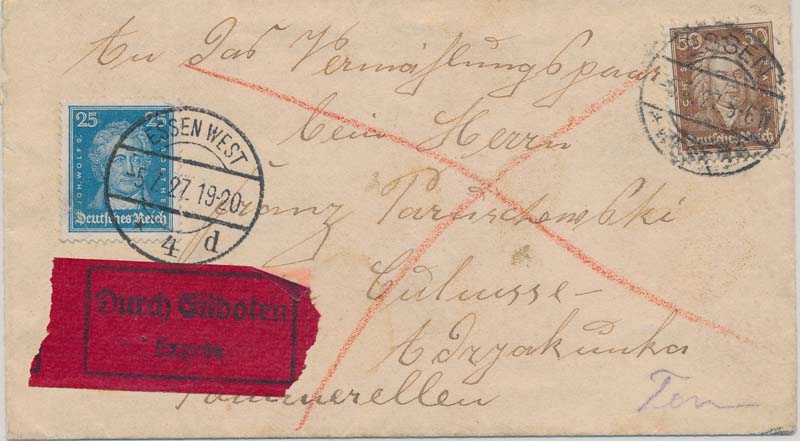 An das Vermählungspaar
50 50
ESSEN
Deutsches Reich
beim Herrn
25 25
JOH. WOLFG. V. GOETHE
Deutsches Reich
ESSEN WEST
27. 19-20
4 d
Franz Paruschewski
Culmsee-
Pommerellen
Durch Eilboten
Exprès